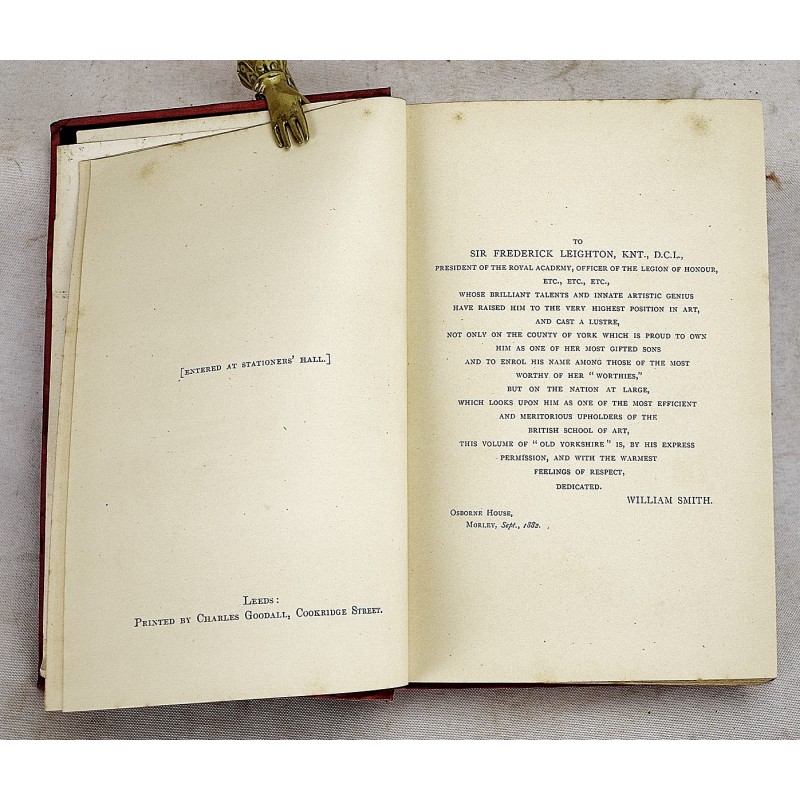 [ENTERED AT STATIONERS' HALL.]
LEEDS:
PRINTED BY CHARLES GOODALL, COOKRIDGE STREET.
TO
SIR FREDERICK LEIGHTON, KNT., D.C.L.,
PRESIDENT OF THE ROYAL ACADEMY, OFFICER OF THE LEGION OF HONOUR,
ETC., ETC., ETC.,
WHOSE BRILLIANT TALENTS AND INNATE ARTISTIC GENIUS
HAVE RAISED HIM TO THE VERY HIGHEST POSITION IN ART,
AND CAST A LUSTRE,
NOT ONLY ON THE COUNTY OF YORK WHICH IS PROUD TO OWN
HIM AS ONE OF HER MOST GIFTED SONS
AND TO ENROL HIS NAME AMONG THOSE OF THE MOST
WORTHY OF HER "WORTHIES,"
BUT ON THE NATION AT LARGE,
WHICH LOOKS UPON HIM AS ONE OF THE MOST EFFICIENT
AND MERITORIOUS UPHOLDERS OF THE
BRITISH SCHOOL OF ART,
THIS VOLUME OF "OLD YORKSHIRE" IS, BY HIS EXPRESS
PERMISSION, AND WITH THE WARMEST
FEELINGS OF RESPECT,
DEDICATED.
WILLIAM SMITH.
OSBORNE HOUSE,
MORLEY, Sept., 1882.